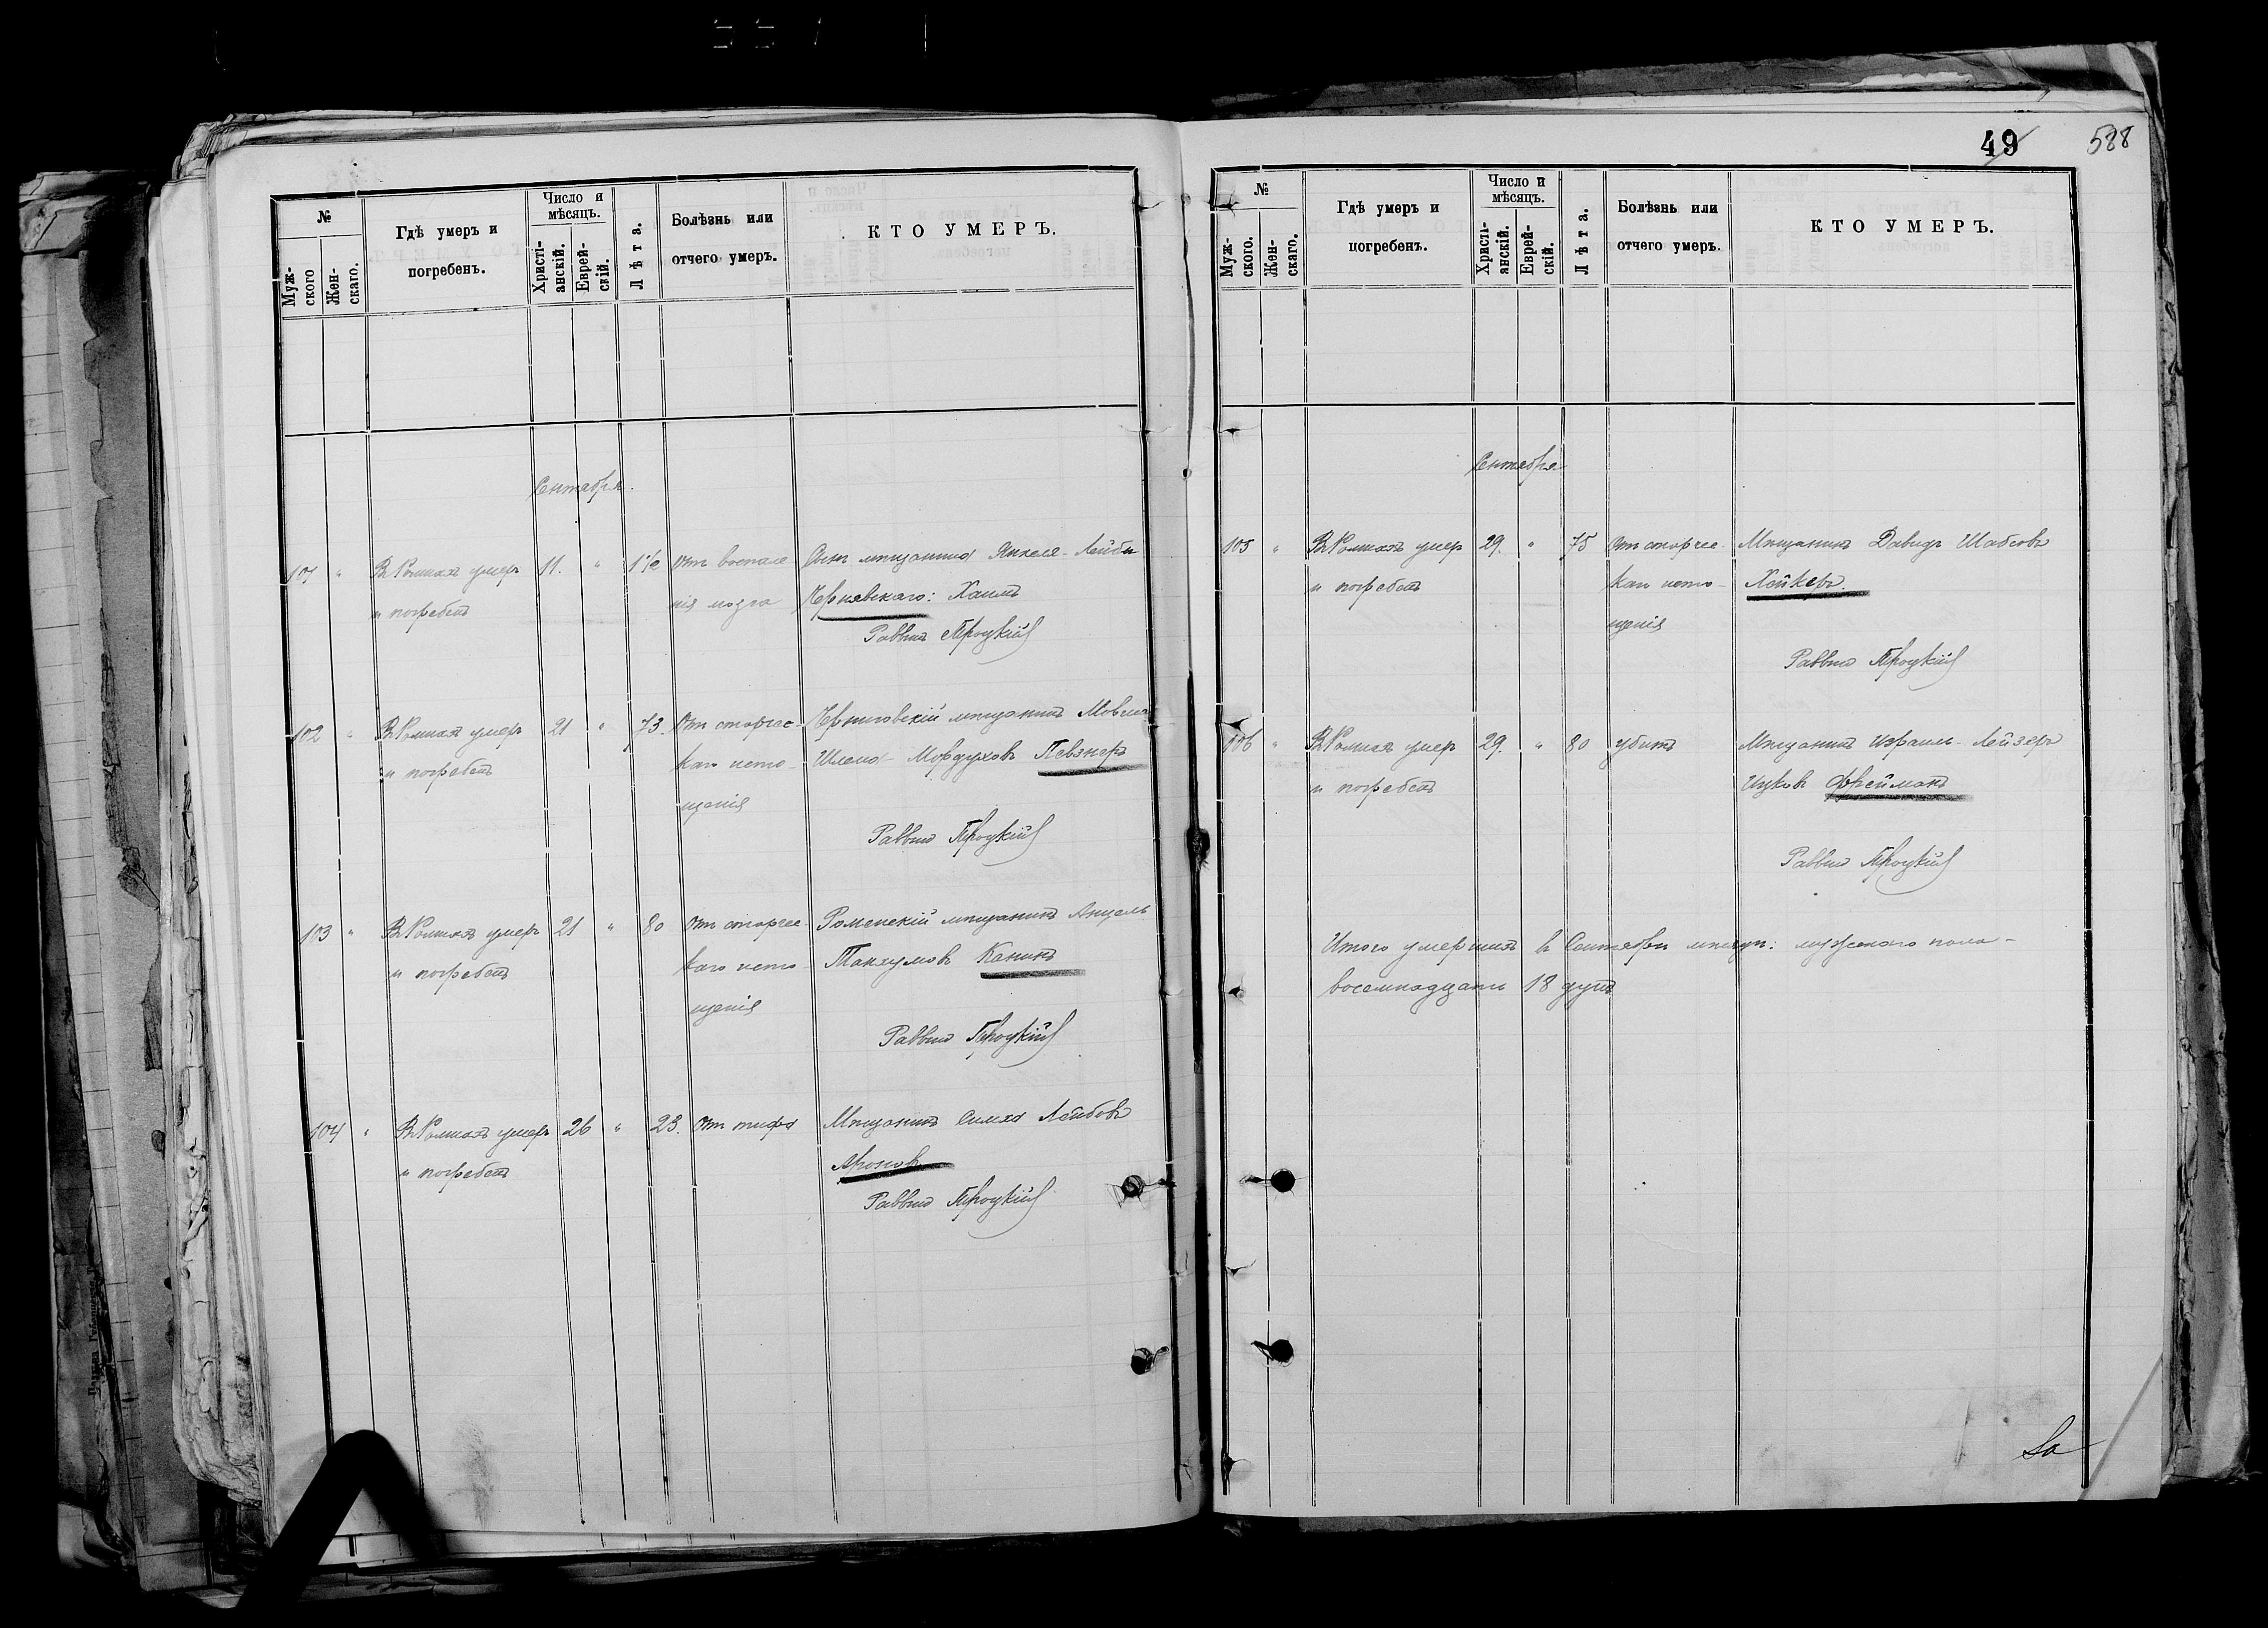 №
Муж-
ского
Жен-
скаго.
Гдѣ умеръ и
погребенъ.
Число и
мѣсяцъ.
Христі-
анскій.
Еврей-
скій.
Лѣта.
Болѣзнь или
отчего умеръ.
КТО УМЕРЪ.
Сентября.
101 " Въ Ромнахъ умеръ 11. " 1½ Отъ воспале Сынъ мѣщанина Янкеля-Лейбы
и погребенъ нія мозга Чернявскаго: Хаимъ
Раввинъ Троцкій
102 " Въ Ромнахъ умеръ 21 " 73. Отъ старчес- Черниговскій мѣщанинъ Мовша
и погребенъ каго исто- Шлема Мордуховъ Певзнеръ
щенія
Раввинъ Троцкій
103 " Въ Ромнахъ умеръ 21 " 80 Отъ старчес- Роменскій мѣщанинъ Анцель
и погребенъ каго исто- Танхумовъ Канинъ
щенія
Раввинъ Троцкій
104 " Въ Ромнахъ умеръ 26 " 23. Отъ тифа Мѣщанинъ Симха Лейбовъ
и погребенъ Ароновъ
Раввинъ Троцкій
49 588
№
Муж-
ского.
Жен-
скаго.
Гдѣ умеръ и
погребенъ.
Число и
мѣсяцъ.
Христі-
анскій.
Еврей-
скій.
Лѣта.
Болѣзнь или
отчего умеръ.
КТО УМЕРЪ.
Сентября
105 " Въ Ромнахъ умеръ 29. " 75 Отъ старчес- Мѣщанинъ Давидъ Шабсовъ
и погребенъ каго исто- Хейкеръ.
щенія
Раввинъ Троцкій
106 " Въ Ромнахъ умеръ 29. " 80 убитъ Мѣщанинъ Израиль-Лейзеръ
и погребенъ Ицковъ Фрейманъ
Раввинъ Троцкій
Итого умершихъ въ Сентябрѣ мѣсяцѣ: мужскаго пола-
восемнадцать 18 душъ